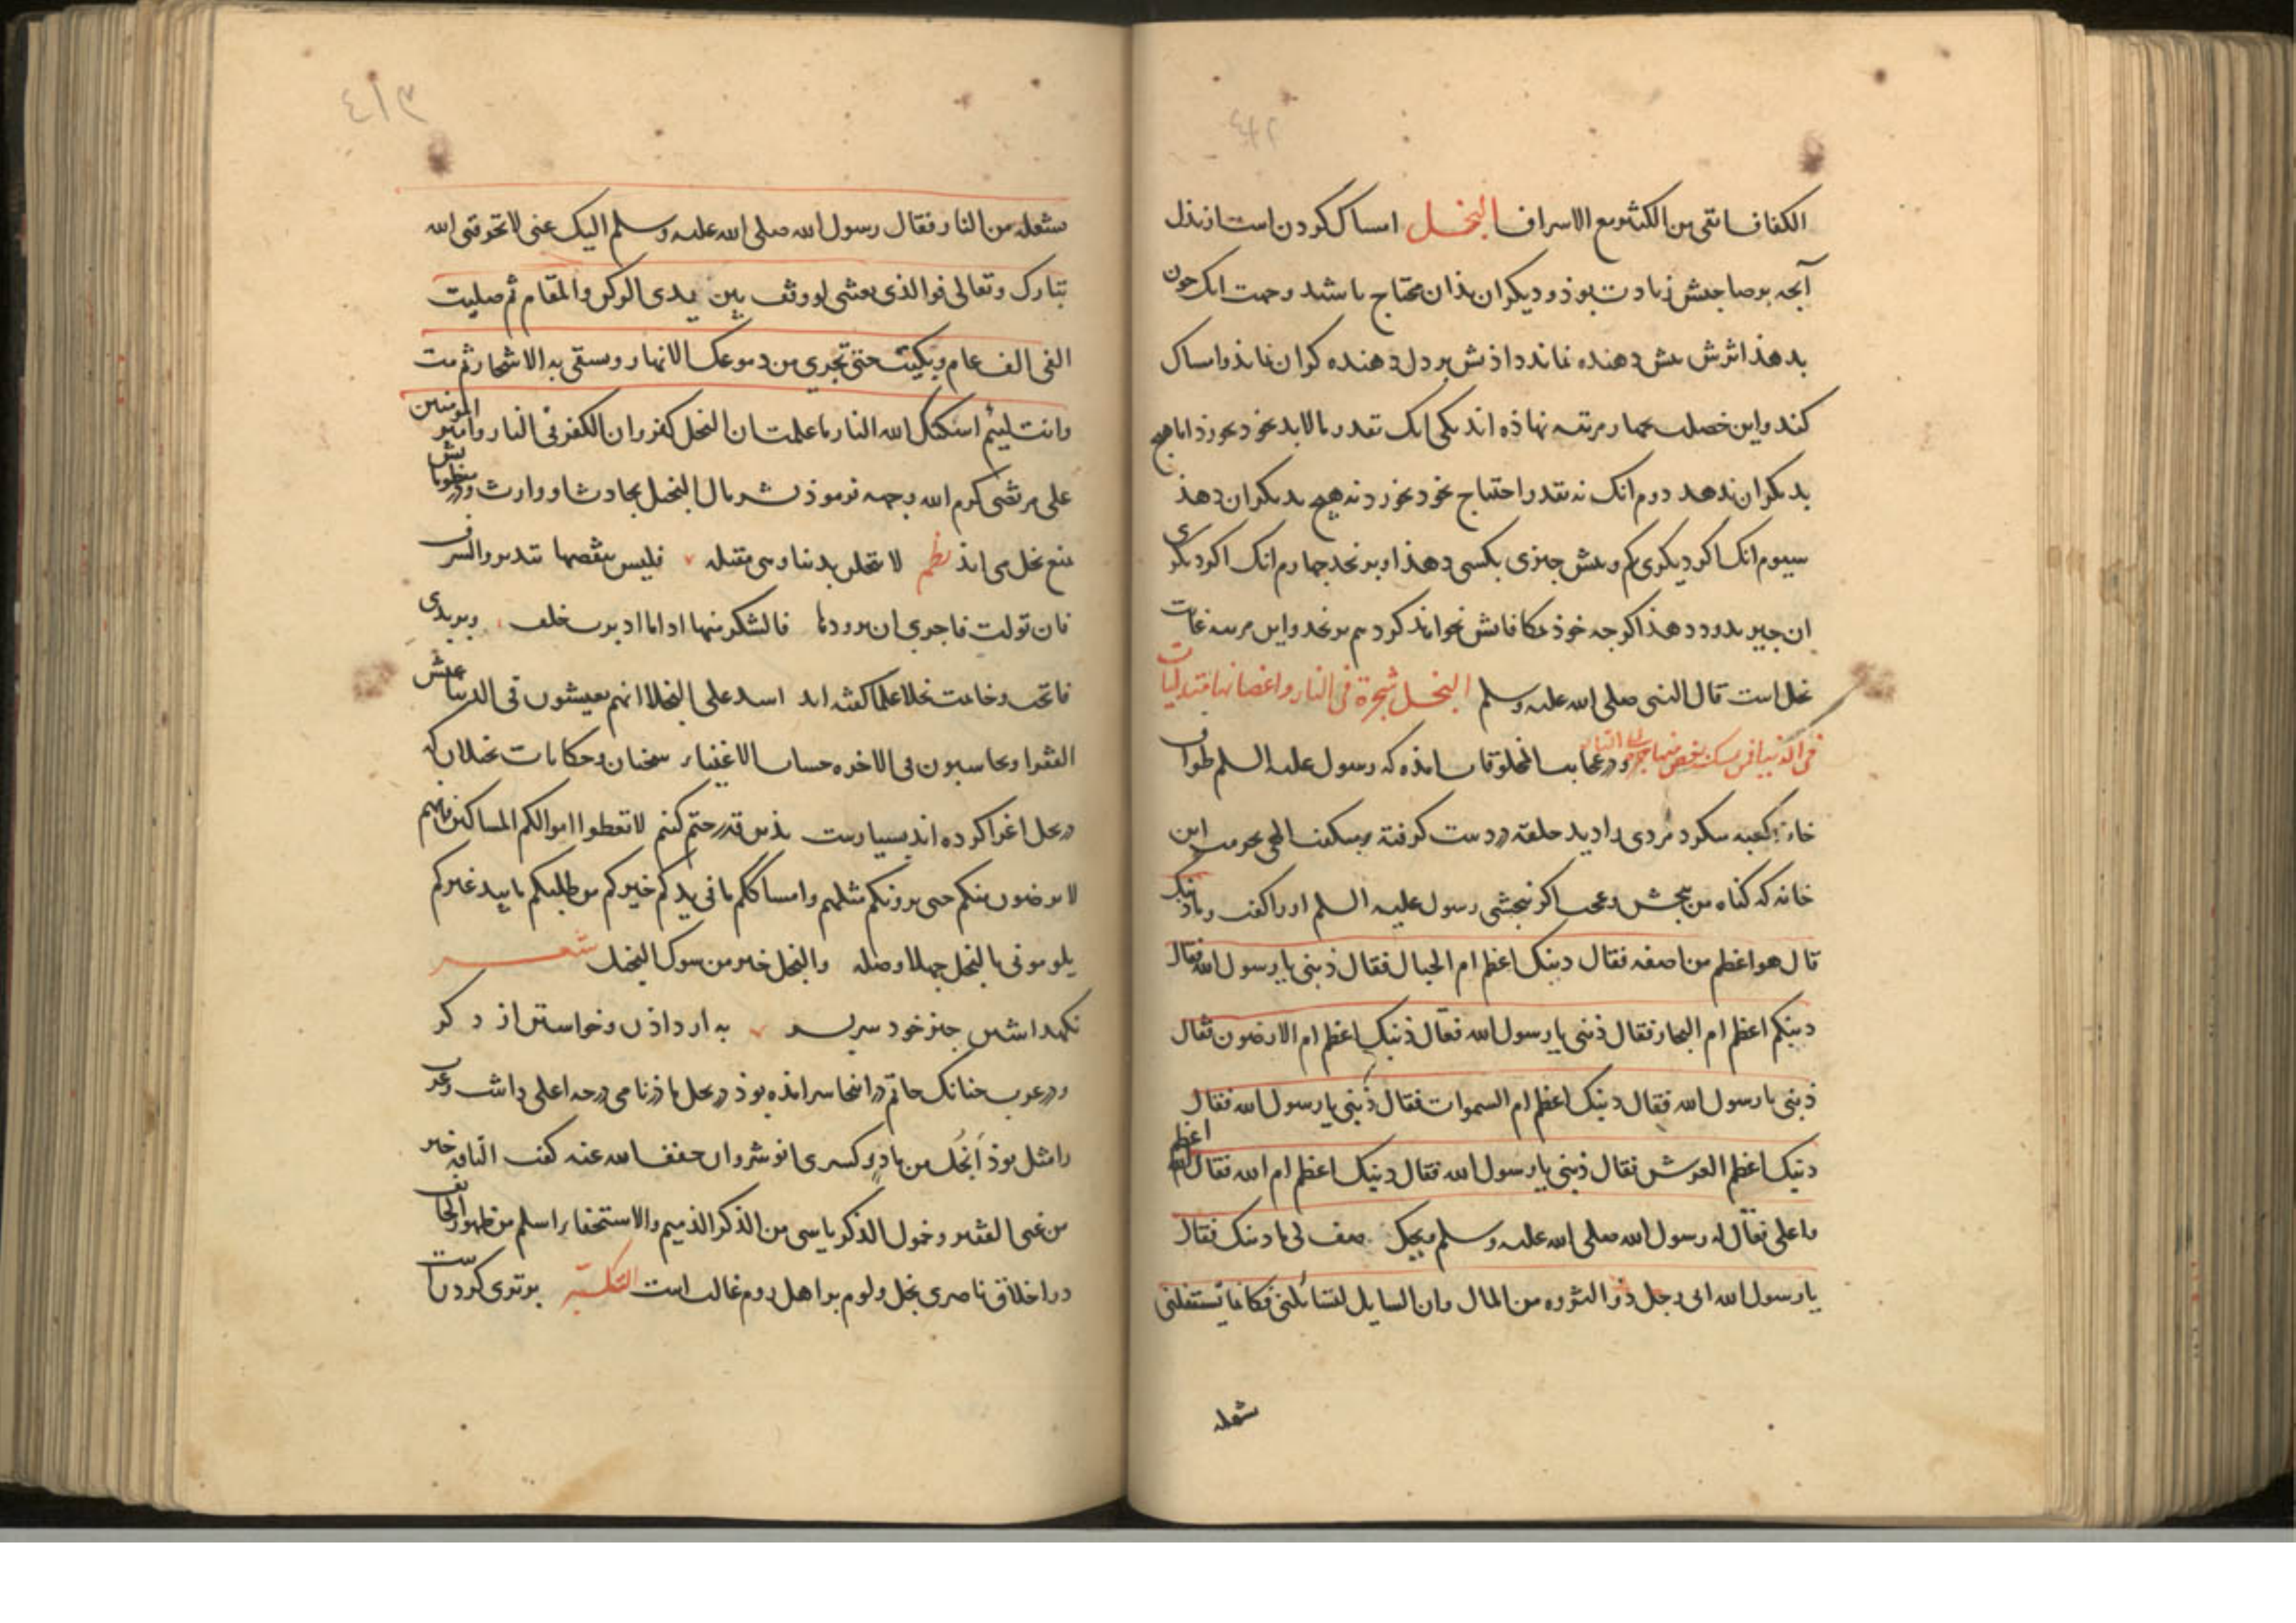 ٤١٢
الكفاف انقى من الكثر مع الاسراف البخل امساك كردن است از بذل
آنچه بر صاحبش زيادت بوذ و ديكران بذان محتاج باشند و حمت انك چون
بدهذ اثرش بش دهنده نماند و اذتش بر دل دهنده كران نمايذ و امساك
كند و اين خصلت بچهار مرتبه نهاذه اند يكى انك بقدر ما لابد خوذ بخورذ اما هيچ
بديكران ندهد دوم انك نه بقدر احتياج خوذ بخورد نه هيچ بديكران دهذ
سيوم انك اكر ديكرى هم و بش چيزى بكسى دهذ او برنجد چهارم انك اكر ديكرى
ان چيز بدو دهذ اكر چه خوذ مكافاتش نخواهذ كرد هم برنجد و اين مرتبه غايت
بخل است قال النبى صلى الله عليه وسلم البخل شجرة فى النار و اغصانها متدليات
فى الدنيا فمن بغصن منها الى النار و در عجايب المخلوقات امذه كه رسول عليه السلم طواف
خانه كعبه ميكرد مردى را ديد حلقه در دست كرفته ميكفت الهى بحرمت اين
خانه كه كناه من ببخش و عجب اكر ببخشى رسول عليه السلم اورا كفت و ما ذنبك
قال هو اعظم من ان اصفه فقال ذنبك اعظم ام الجبال فقال ذنبى يا رسول الله فقال
ذنبكم اعظم ام البحار فقال ذنبى يا رسول الله فقال ذنبك اعظم ام الارضون فقال
ذنبى يا رسول الله فقال ذنبك اعظم ام السموات فقال ذنبى يا رسول الله فقال
ذنبك اعظم ام العرش فقال ذنبى يا رسول الله فقال ذنبك اعظم ام الله فقال الله اعظم
واعلى فقال له رسول الله صلى الله عليه وسلم ويحك صف لى ما ذنبك فقال
يا رسول الله انى رجل ذو الثروه من المال وان السايل لتسائلنى فكانما تستقبلنى
شعله
٤١٣
شعله من النار فقال رسول الله صلى الله عليه وسلم اليك عنى لا تحرقنى الله
تبارك وتعالى فوالذى بعثنى لو وقف بين يدى الركن والمقام ثم صليت
الفى الف عام وبكيت حتى تجرى من دموعك الانهار وسقى به الاشجار ثم مت
وانت لييم اسكنك الله النار ما علمت ان البخل كفر وان الكفر فى النار و امير المومنين
على مرتضى كرم الله وجهه فرموذ بشر مال البخيل بحادث او وارث و در خطوبا بش
منع بخل مى ايذ نظم لا تبخلن بدنيا و هى مقبله فليس ينقصها تبذير والسرف
فان تولت فاحرى ان فالشكر منها اذا ما ادبرت خلف
و خامت بخلا علما كفته اند على البخلا انهم يعيشون فى الدنيا عيش
الفقرا و يحاسبون فى الاخره حساب الاغنيا سخنان و حكايات بخلان كه
در بخل اغرا كرده اند بسيارست بذين قدر ختم كنم لا تعطوا اموالكم المساكين فانهم
لا يرضون منكم حتى يرونكم مثلهم وامساككم ما فى يدكم خير لكم من طلبكم ما بيد غيركم
يلومونى بالبخل جهلا وضله والبخل خير من سوال البخيل شعر
نكهداشتن چيز خود سربسر به از داذن و خواستن از دكر
و در عرب چنانك حاتم در سخا سرامذه بوذ در بخل ماذر نامى درجه اعلى داشت و عرب
را مثل بوذ ابخل من ماذر و كسرى انوشروان خفف الله عنه كفت الفاقه خير
من غنى الفقير و خمول الذكر من الذكر الذميم والاستخفا اسلم من ظهور الخايف
در اخلاق ناصرى بخل و لوم بر اهل روم غالب است التكبر برترى كردن است